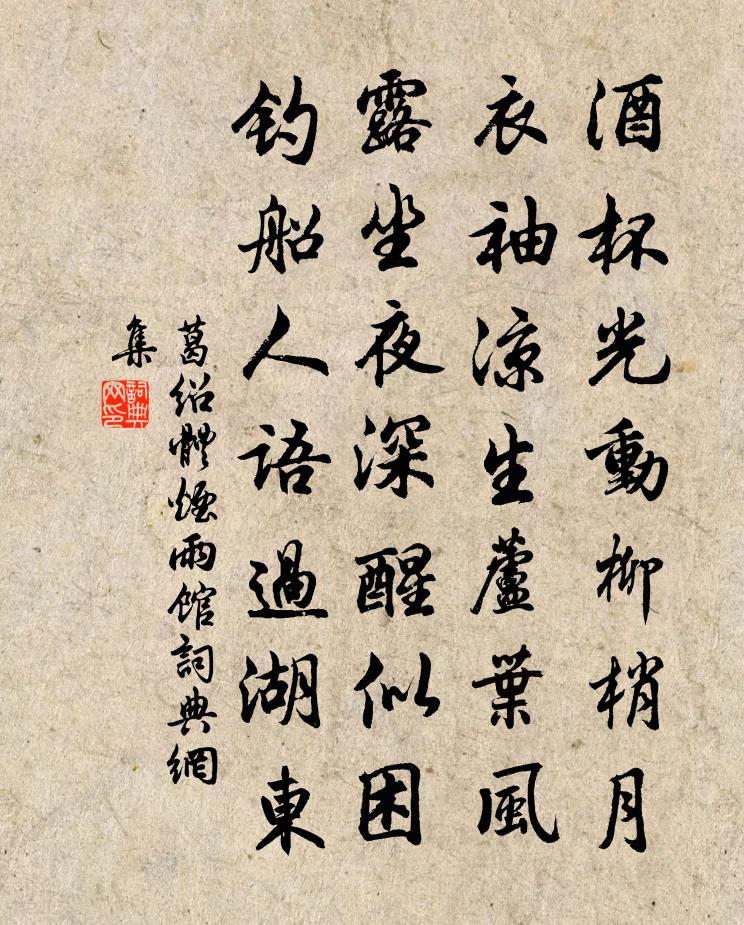 酒杯光動柳梢月
衣袖涼生蘆葉風
露坐夜深醒似困
釣船人語過湖東
葛紹體煙雨館詞典網
集
詞典網印